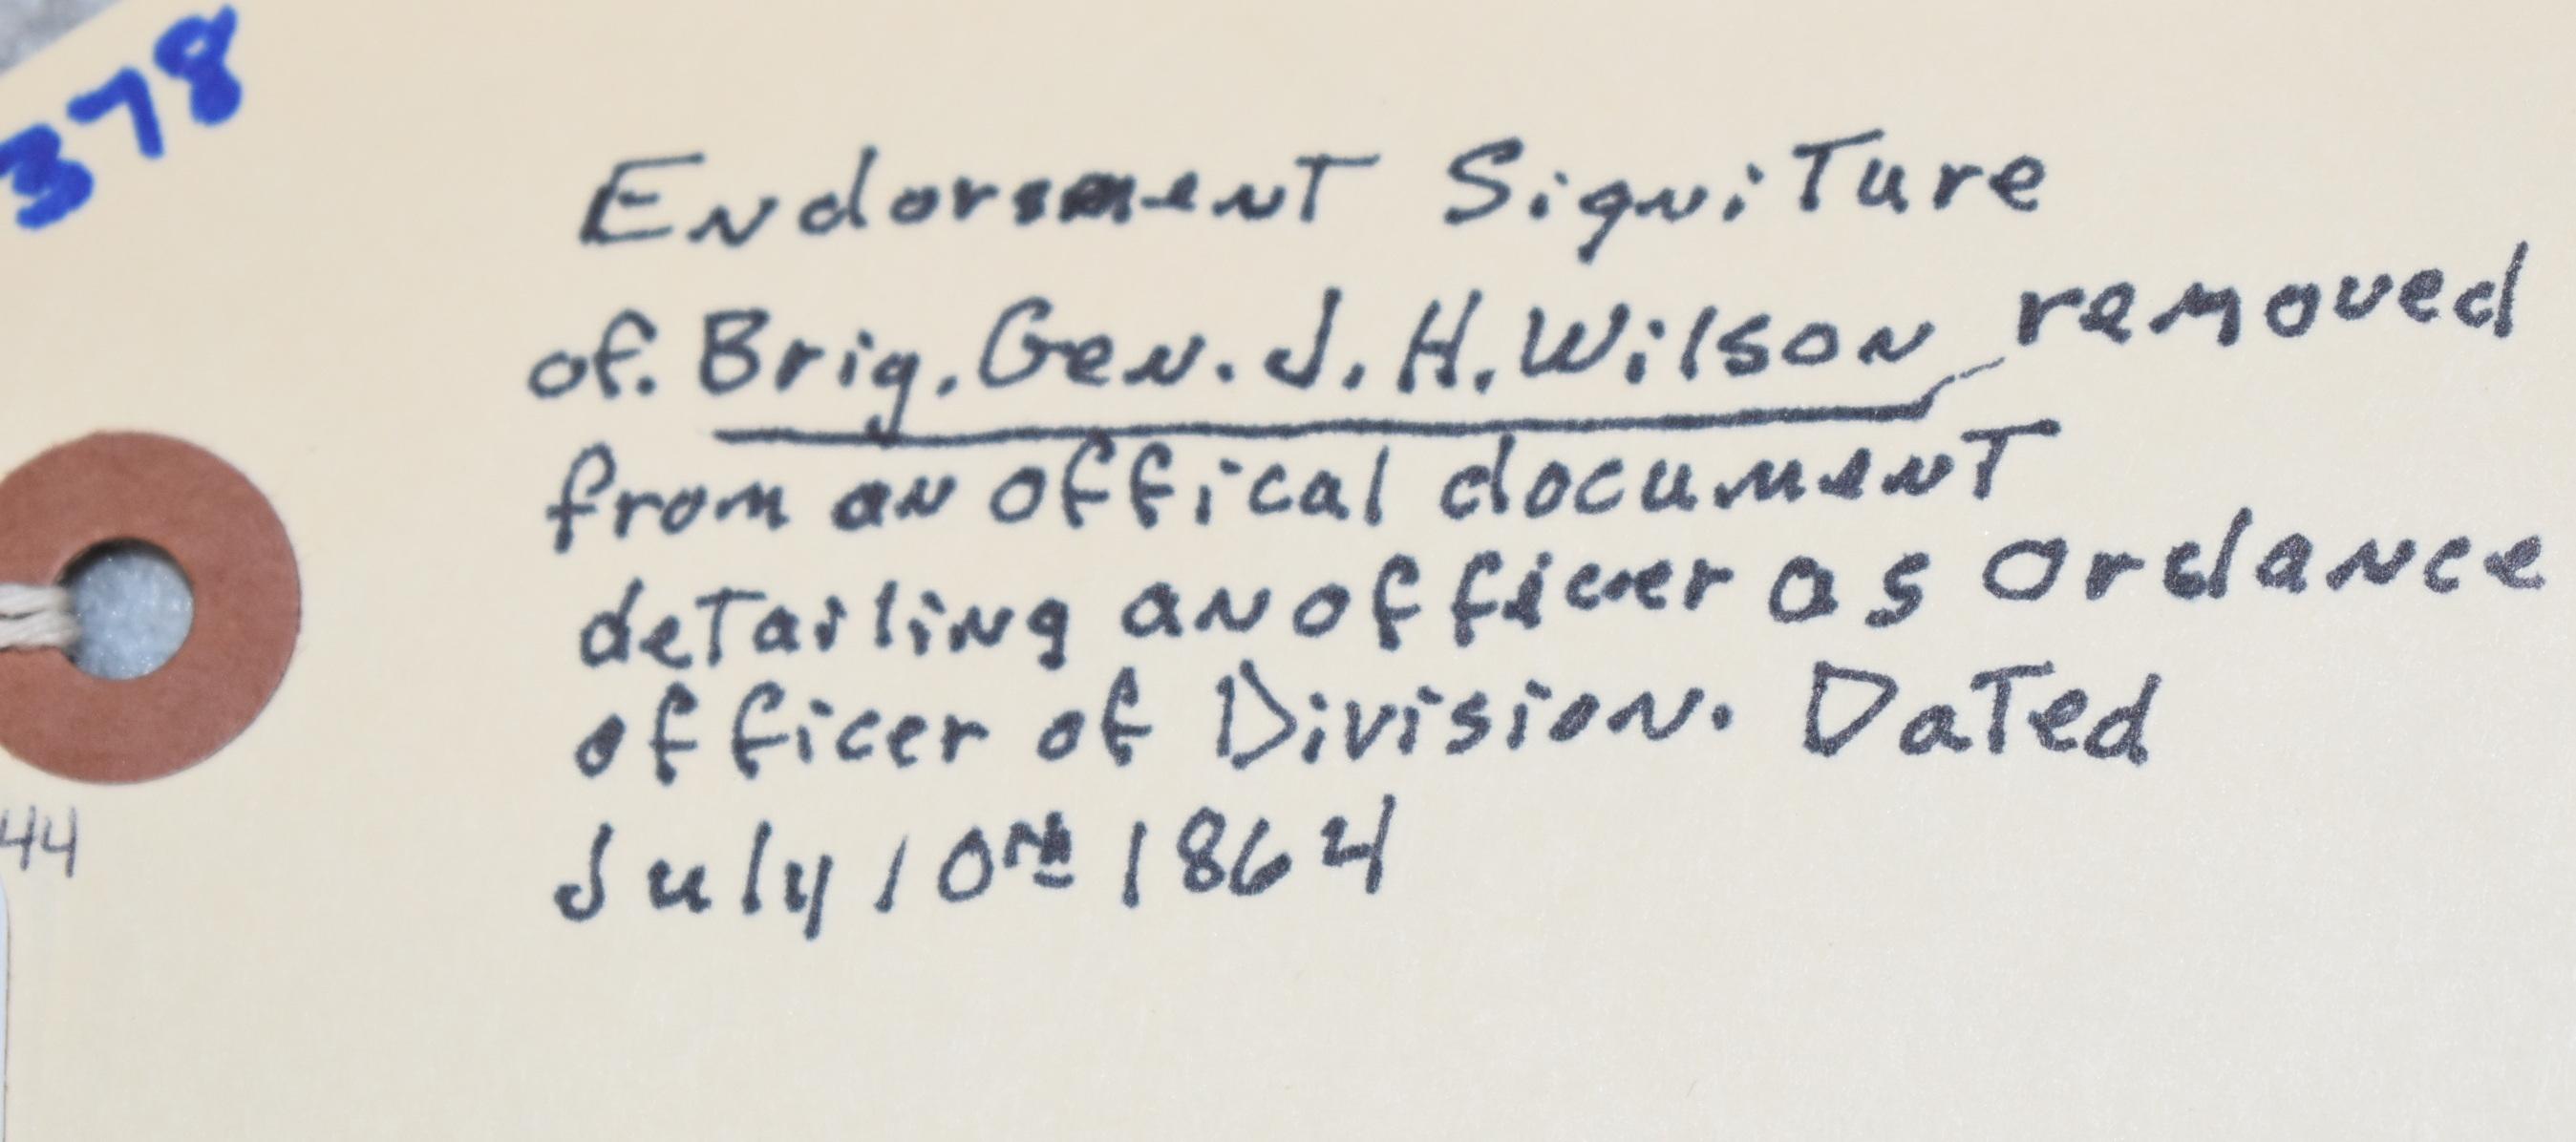 378
Endorsment Signiture
of. Brig. Gen. J. H. Wilson removed
from an offical document
detailing an officer as Ordance
officer of Division. Dated
July 10th 1864
44